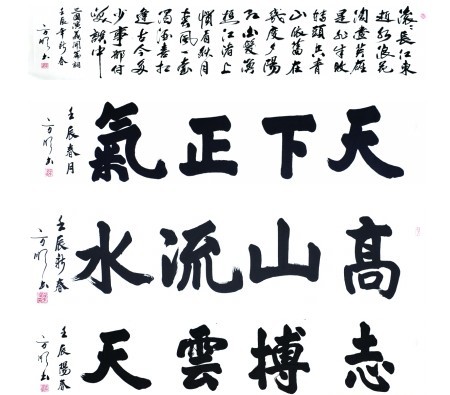 滚滚長江東
逝水浪花
淘盡英雄
是非成敗
轉頭空青
山依舊在
幾度夕陽
紅白髮漁
樵江渚上
慣看秋月
春風一壺
濁酒喜相
逢古今多
少事都付
笑談中
三國演義開篇詞
壬辰年新春
天下正氣
壬辰春月
高山流水
壬辰新春
志搏雲天
壬辰陽春